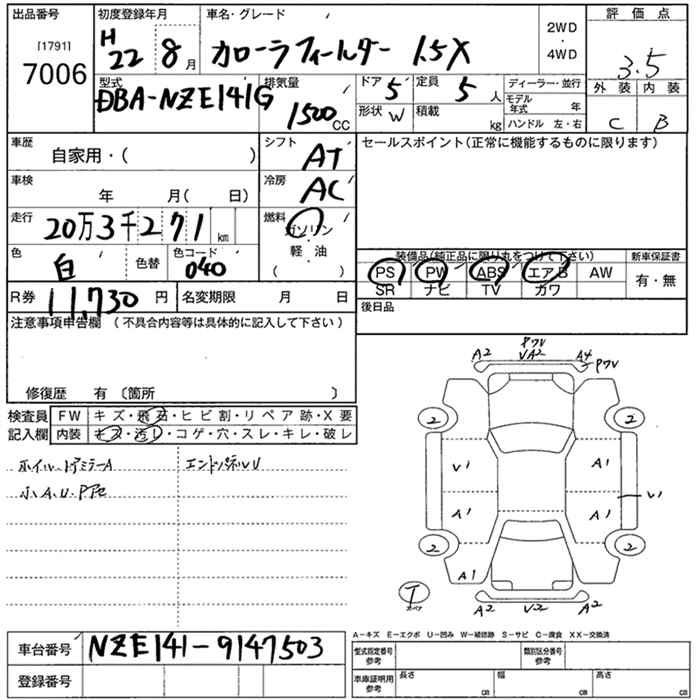 出品番号 初度登録年月 車名・グレード 2WD・4WD 評価点
[1791] 7006 H22 8月 カローラフィールダー 1.5X 3.5
型式 排気量 ドア 5 定員 5人 ディーラー・並行 外装 内装
DBA-NZE141G 1500CC 形状 W 積載 kg モデル年式 年 ハンドル 左・右 C B
車歴 自家用・( ) シフト AT セールスポイント(正常に機能するものに限ります)
車検 年 月( 日) 冷房 AC
走行 20万3千271km 燃料 ガソリン 軽・油 ( )
色 白 色替 色コード 040 装備品(純正品に限り丸をつけて下さい) 新車保証書
PS PW ABS エアB AW 有・無
SR ナビ TV カワ
R券 11,730円 名変期限 月 日 後日品
注意事項申告欄 (不具合内容等は具体的に記入して下さい)
修復歴 有 〔箇所 〕
検査員 FW キズ・飛石・ヒビ割・リペア跡・X要
記入欄 内装 キズ・汚レ・コゲ・穴・スレ・キレ・破レ
小A.U.Pアセ
A2 VA2 A4
2 2
V1 A1
V1
A1 A1
2 2
A1
T
A2 V2 A2
A-キズ E-エクボ U-凹み W-補修跡 S-サビ C-腐食 XX-交換済
車台番号 NZE141-9147503 型式指定番号 参考 類別区分番号 参考
登録番号 車庫証明用 参考 長さ cm 幅 cm 高さ cm